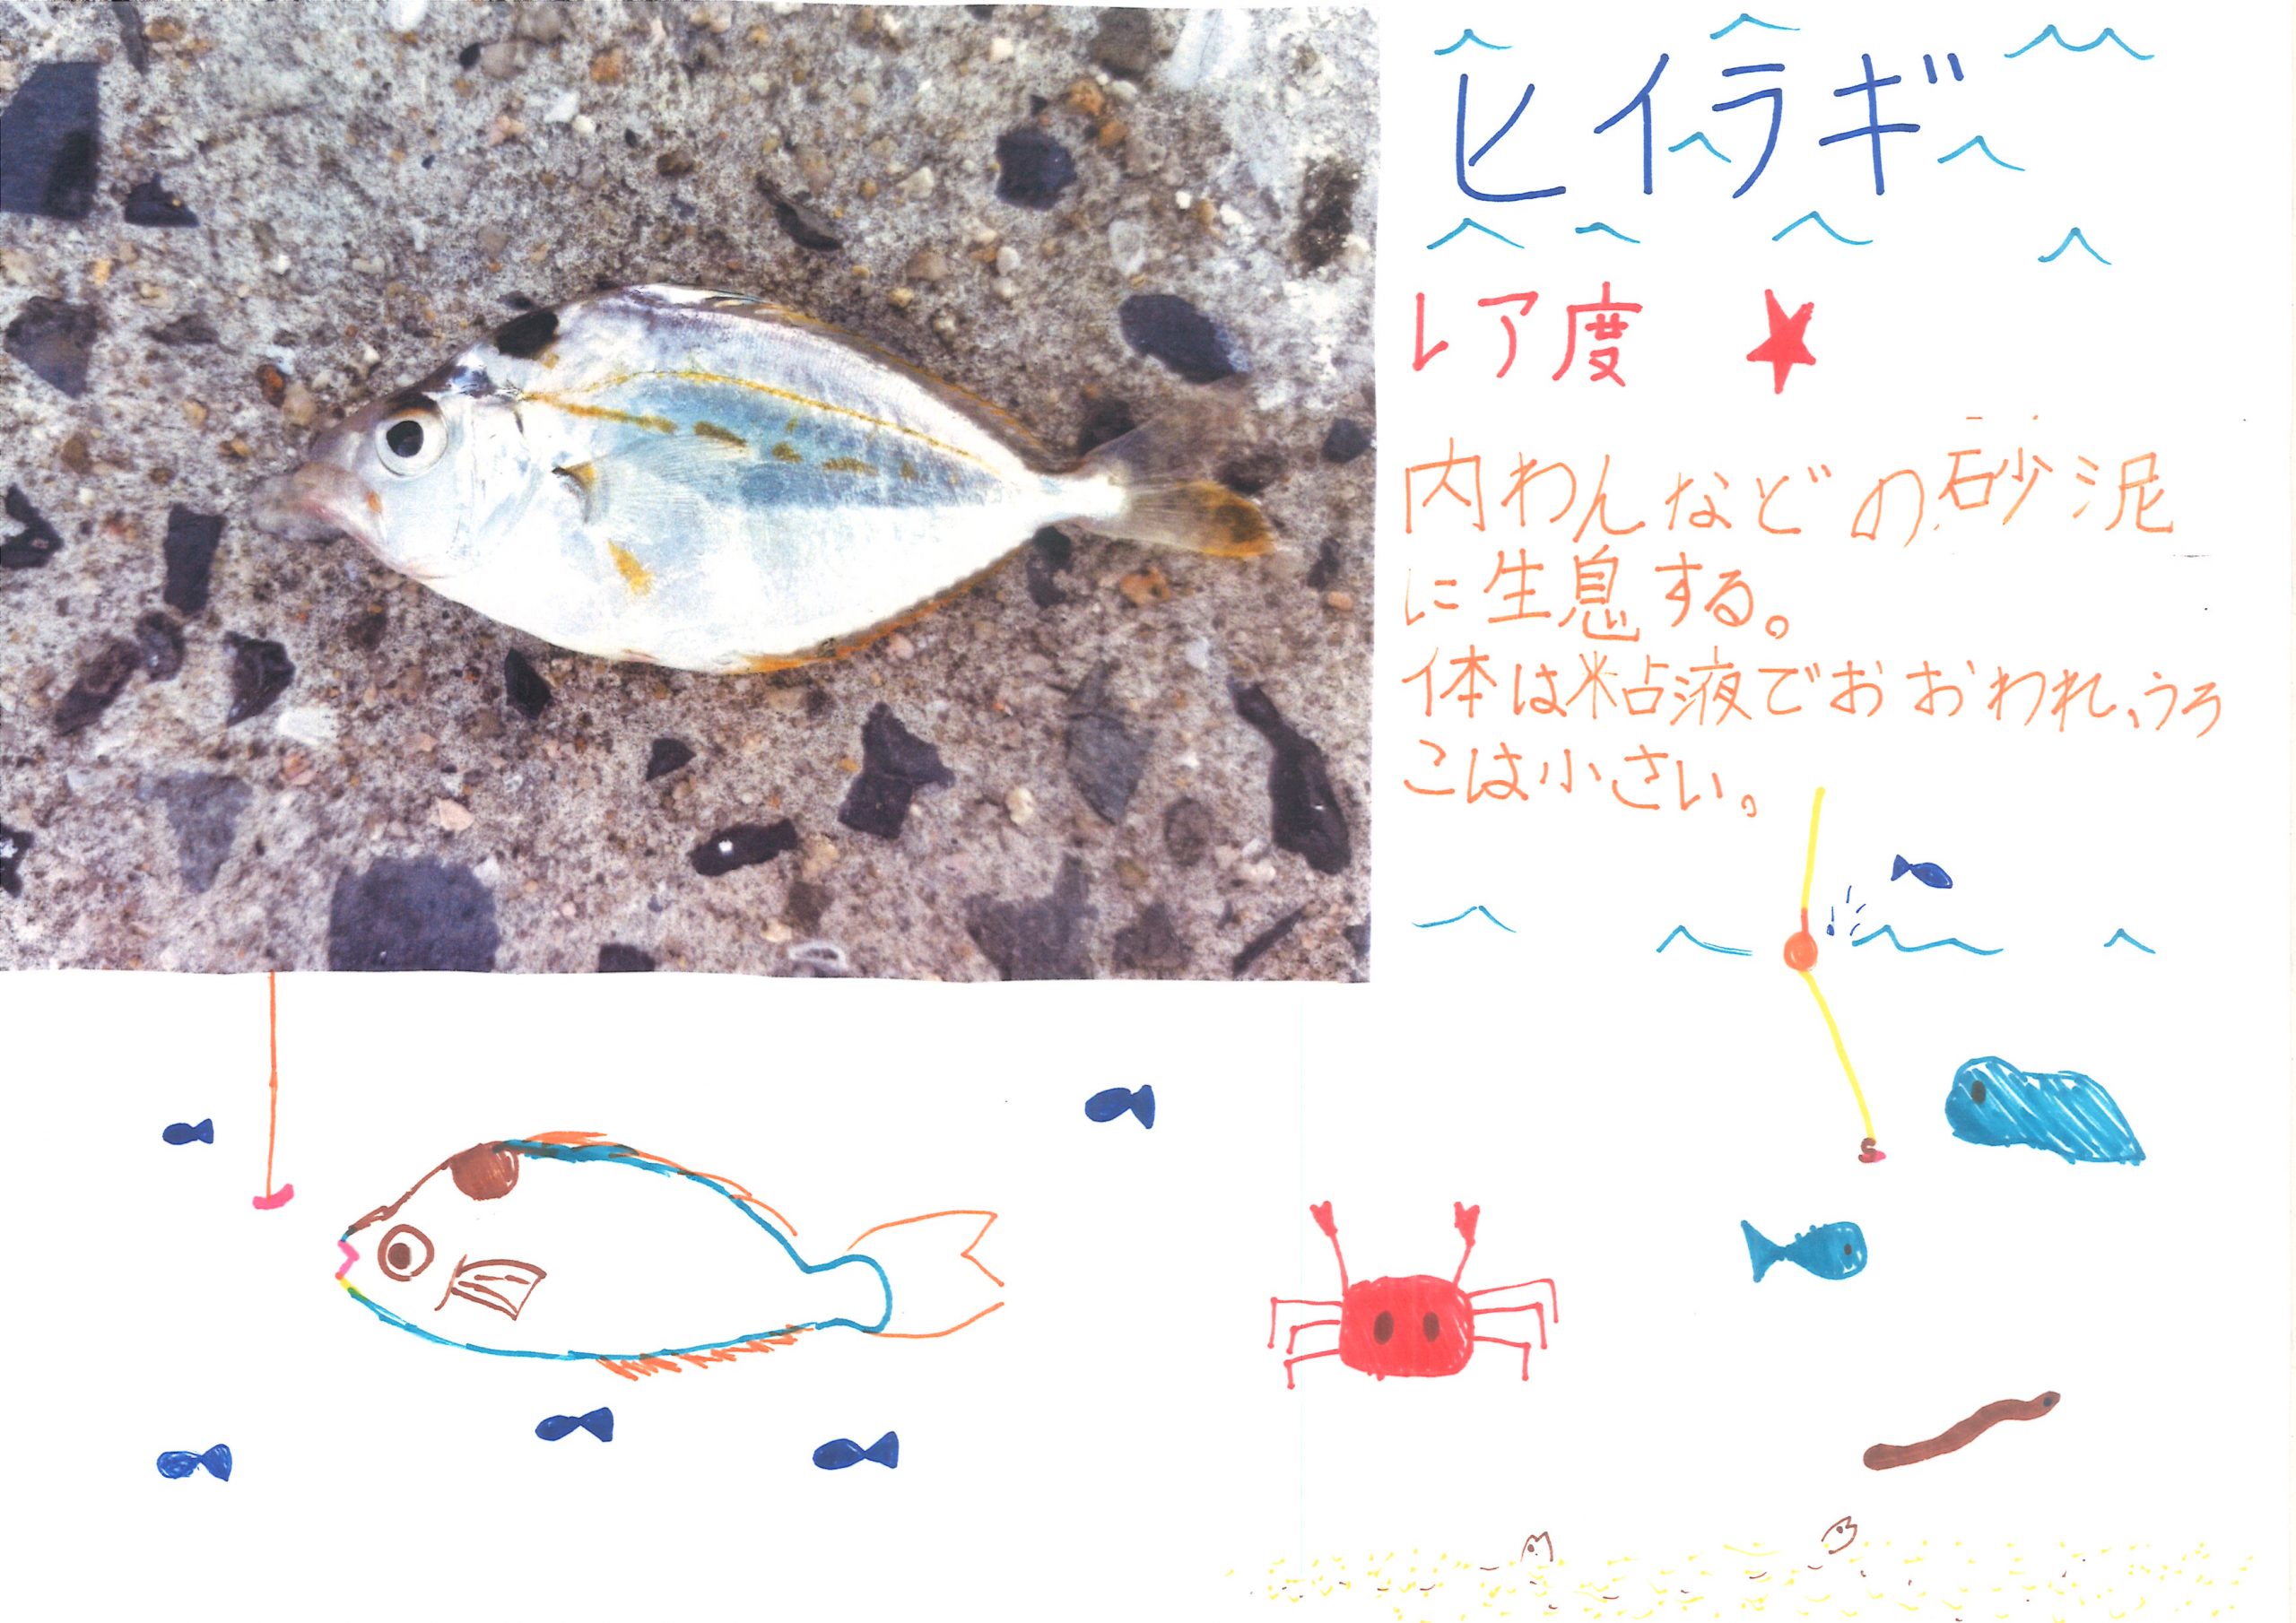 ヒイラギ
レア度 ★
内わんなどの砂泥
に生息する。
体は粘液でおおわれ、うろ
こは小さい。